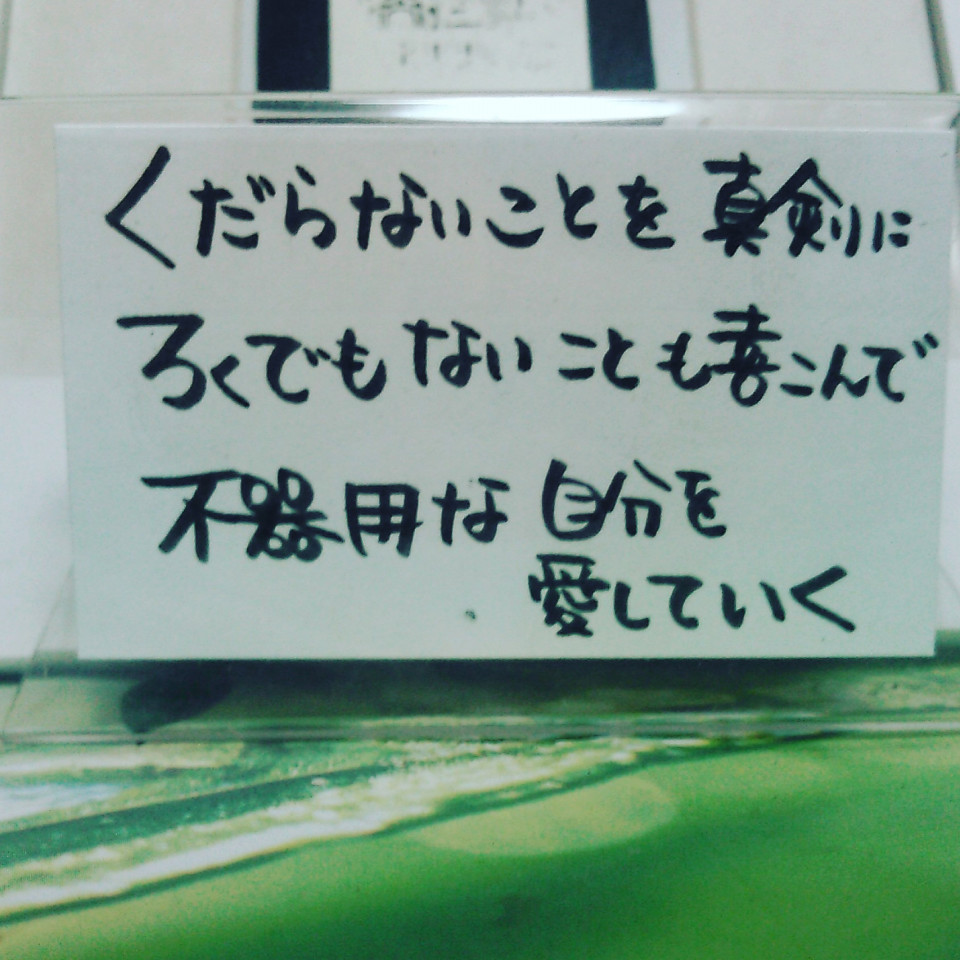 くだらないことを真剣に
ろくでもないことも喜こんで
不器用な自分を
愛していく